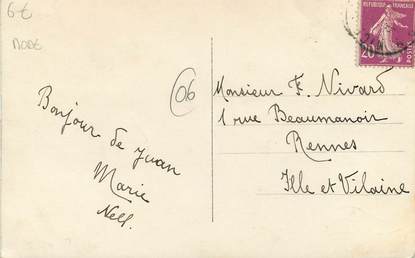 6€
MODE
06
RÉPUBLIQUE FRANÇAISE
20
POSTES
Bonjour de Juan
Marie
Nell.
Monsieur F. Nivard
1 rue Beaumanoir
Rennes
Ille et Vilaine